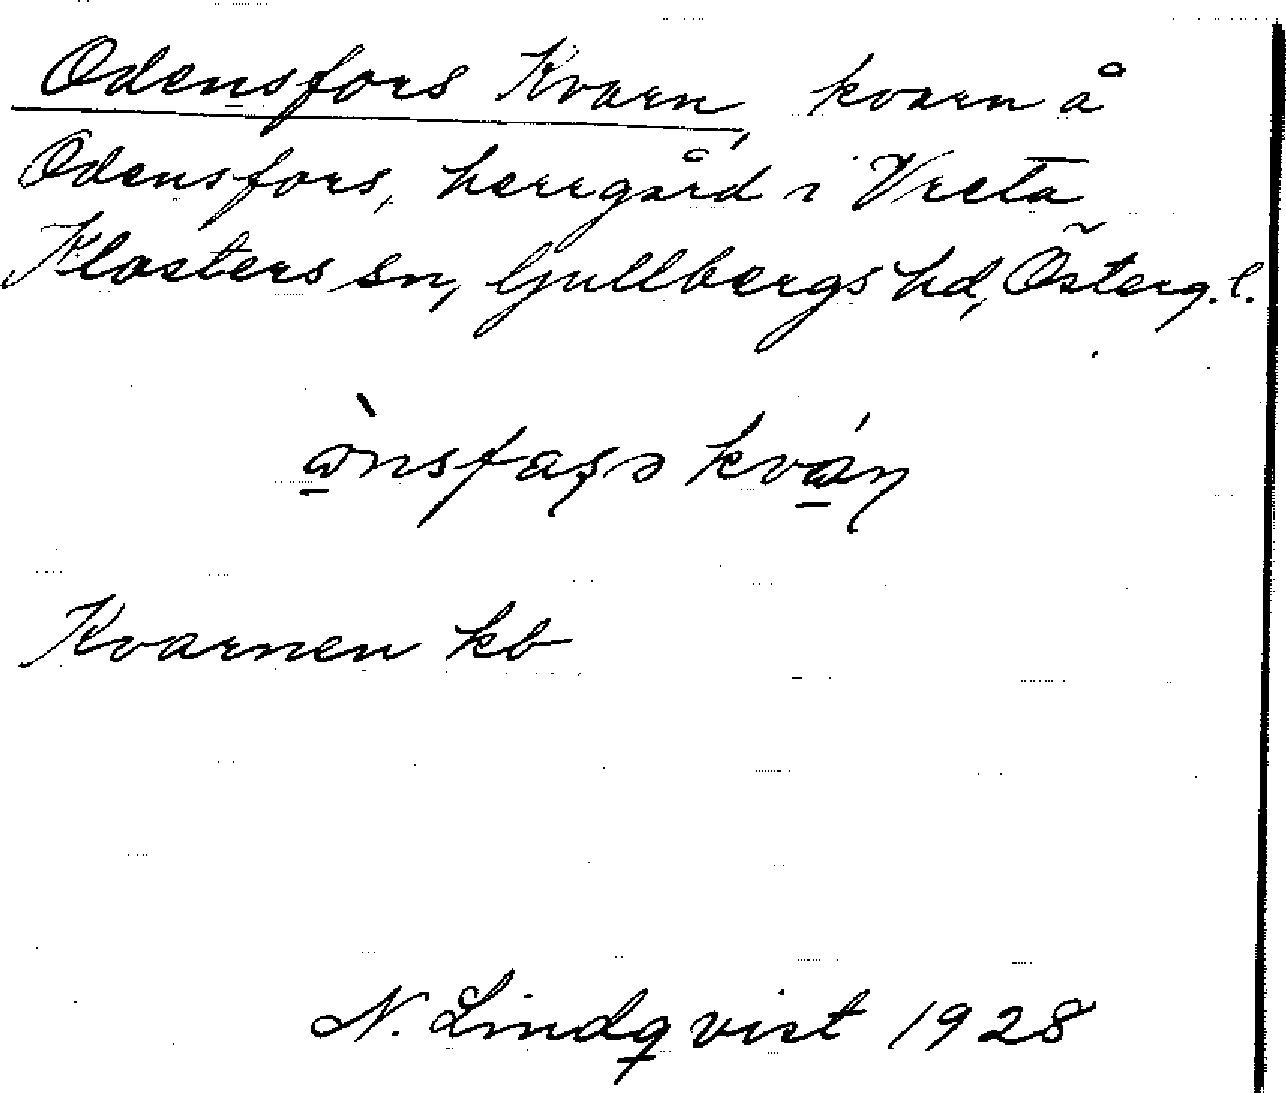 Odensfors Kvarn, kvarn å
Odensfors, herrgård i Vreta
Klosters sn, Gullbergs hd, Österg. l.
Kvarnen kb
N. Lindqvist 1928